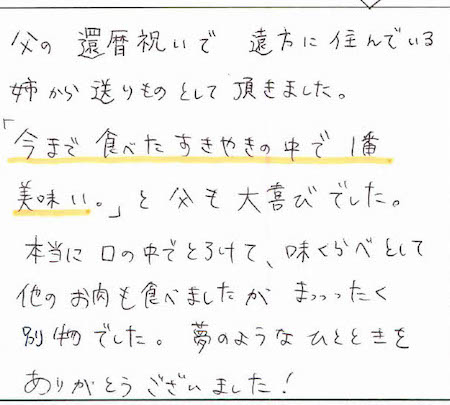 父の還暦祝いで 遠方に住んでいる
姉から送りものとして頂きました。
「今まで食べたすきやきの中で1番
美味い。」と父も大喜びでした。
本当に口の中でとろけて、味くらべとして
他のお肉も食べましたが まっったく
別物でした。夢のようなひとときを
ありがとうございました!